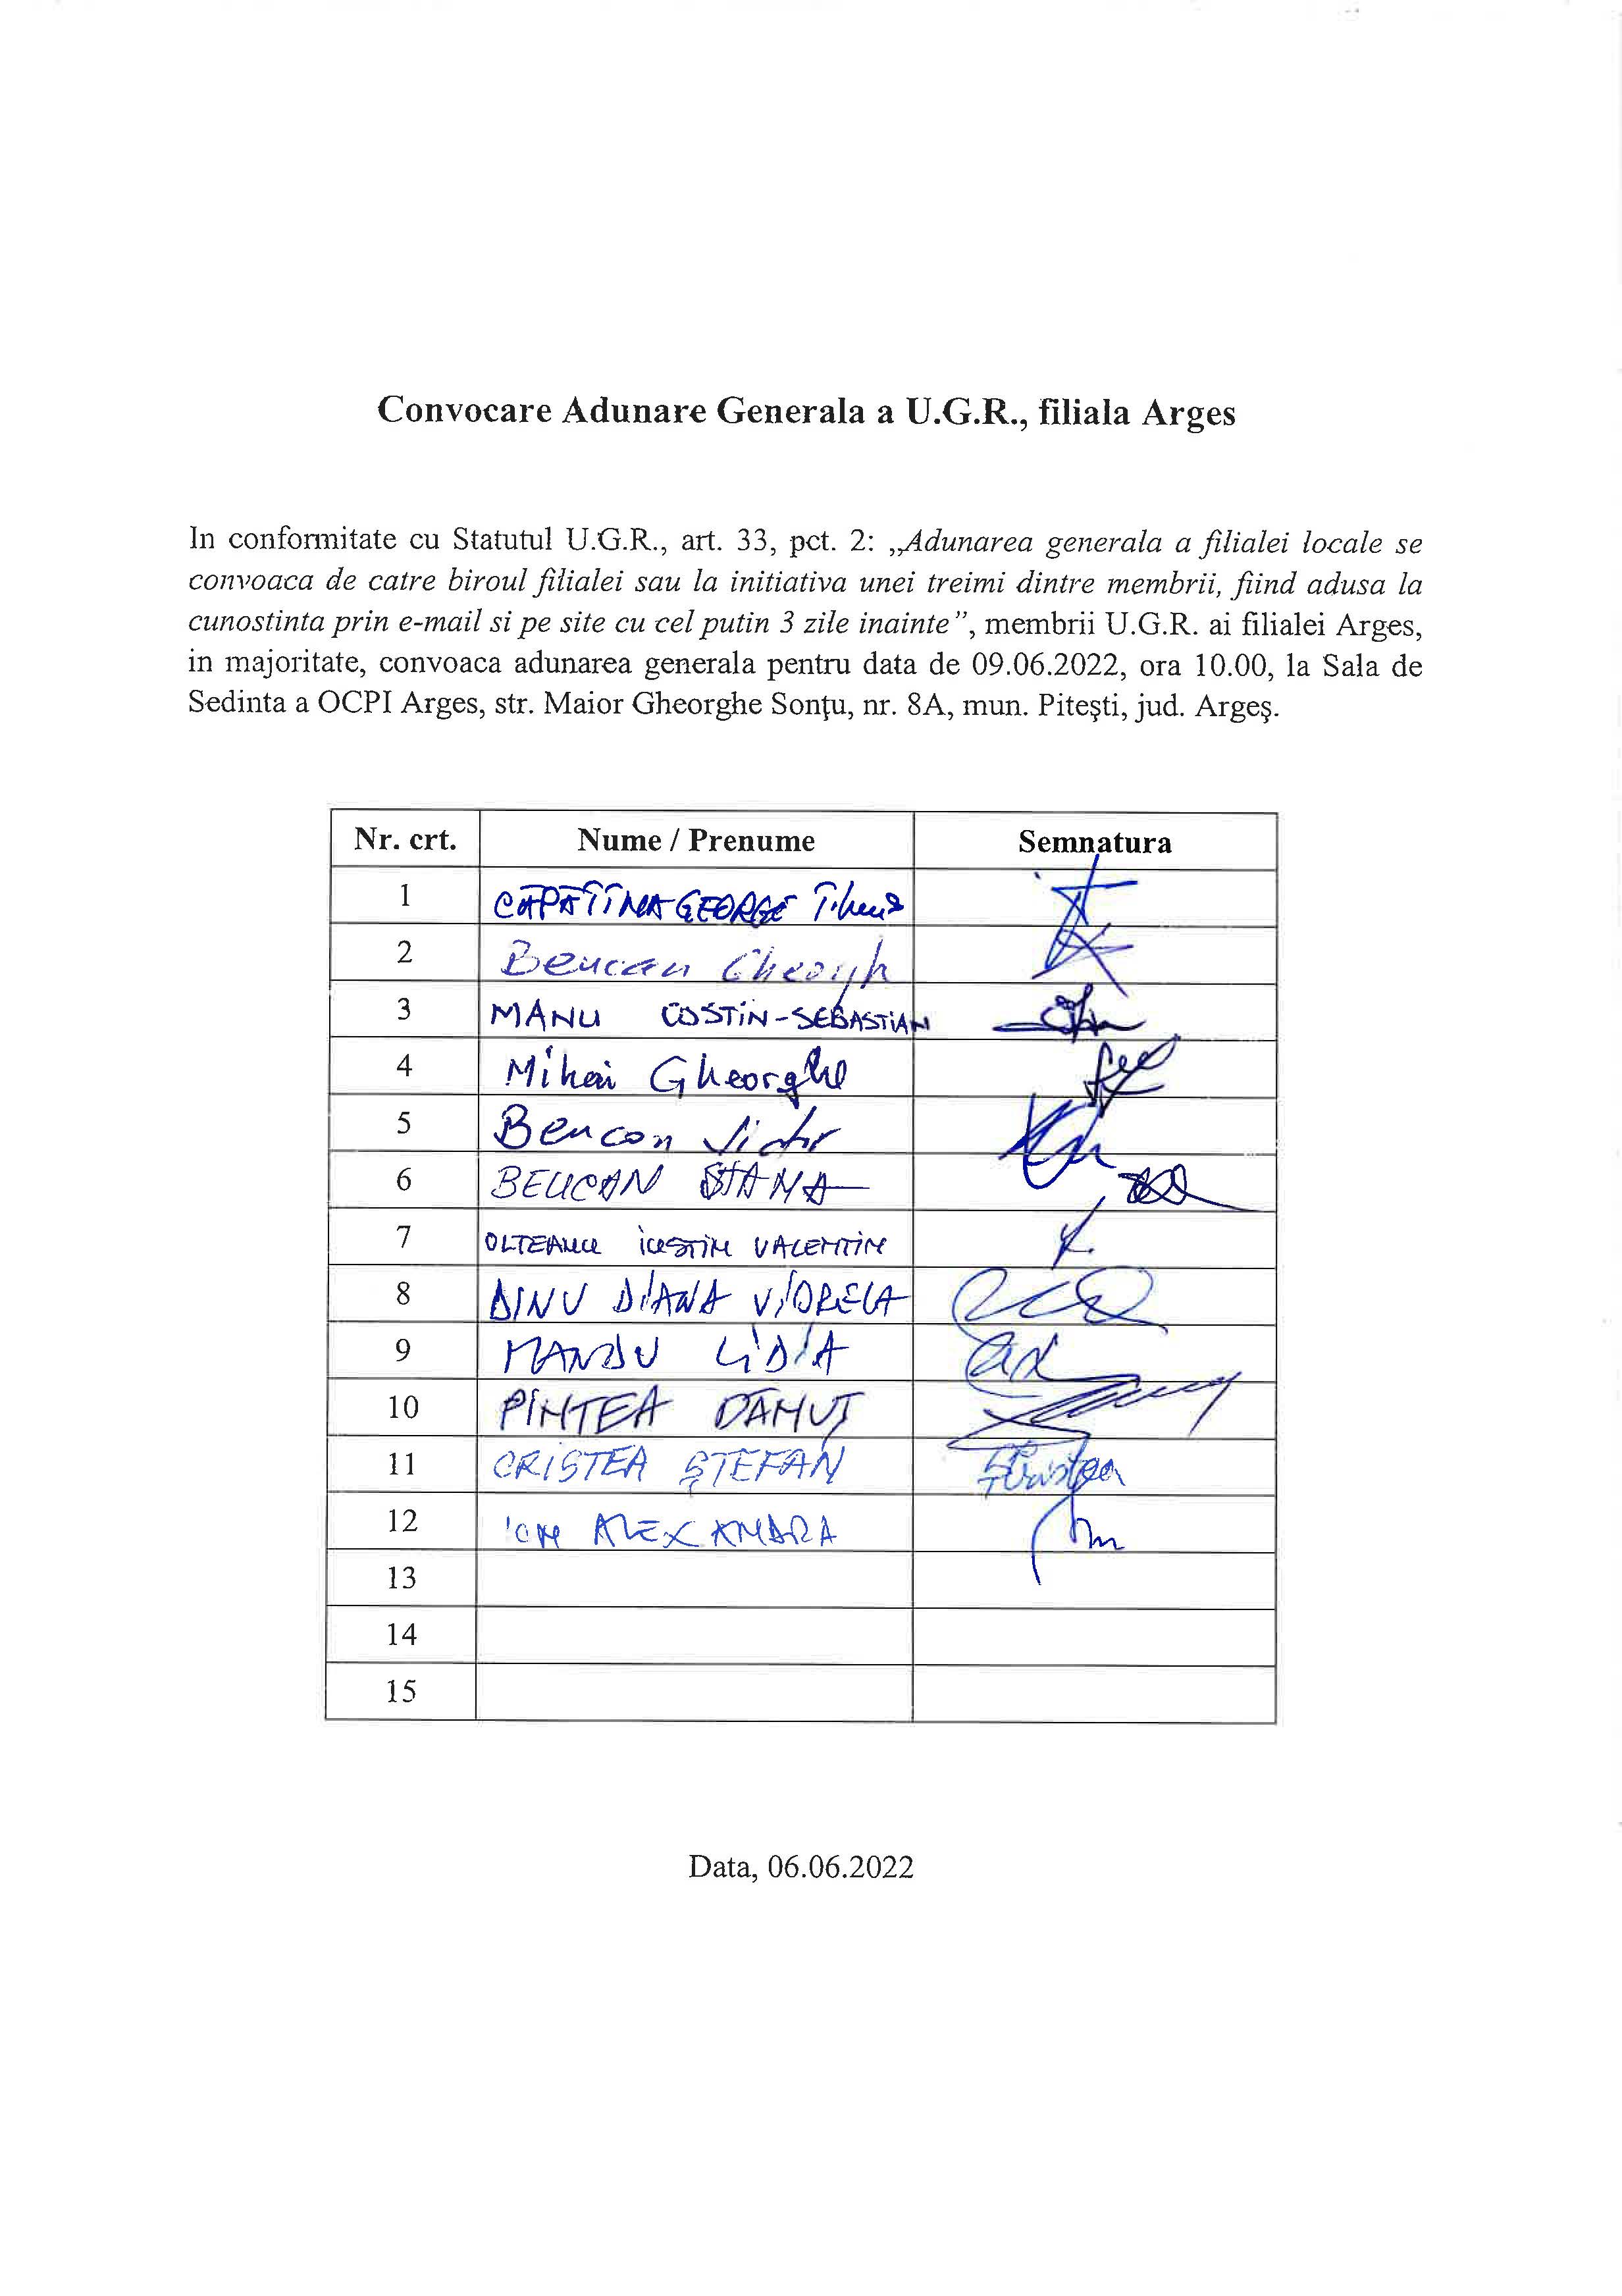 Convocare Adunare Generala a U.G.R., filiala Arges
In conformitate cu Statutul U.G.R., art. 33, pct. 2: „Adunarea generala a filialei locale se
convoaca de catre biroul filialei sau la initiativa unei treimi dintre membrii, fiind adusa la
cunostinta prin e-mail si pe site cu cel putin 3 zile inainte”, membrii U.G.R. ai filialei Arges,
in majoritate, convoaca adunarea generala pentru data de 09.06.2022, ora 10.00, la Sala de
Sedinta a OCPI Arges, str. Maior Gheorghe Sonţu, nr. 8A, mun. Piteşti, jud. Argeş.
Nr. crt. Nume / Prenume Semnatura
1 CĂPĂŢÎNA GEORGE
2 Beucan Gheorgh
3 MANU COSTIN-SEBASTIAN
4 Mihai Gheorghe
5 Beucan Victor
6 BEUCAN STANA
7 OLTEANU IUSTIN VALENTIN
8 DINU DIANA VIORELA
9 MANDU LIDIA
10 PINTEA DĂNUŢ
11 CRISTEA ŞTEFAN
12 ION ALEXANDRA
13
14
15
Data, 06.06.2022